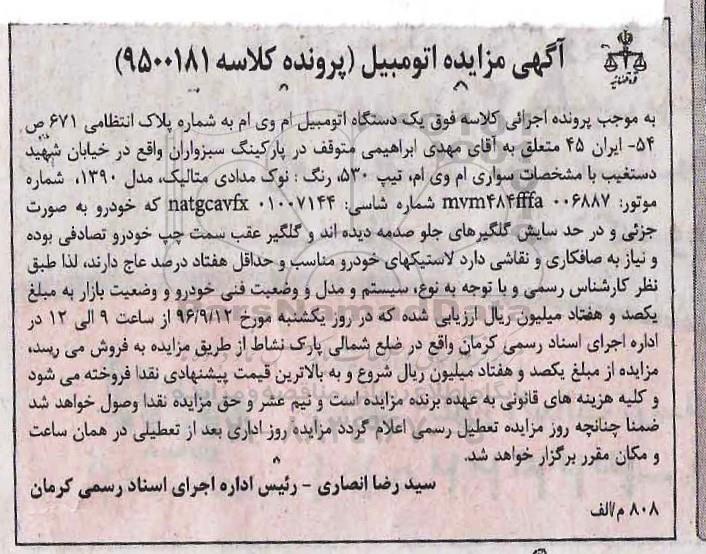 آگهی مزایده اتومبیل (پرونده کلاسه ۹۵۰۰۱۸۱)
قوه قضائیه
به موجب پرونده اجرائی کلاسه فوق یک دستگاه اتومبیل ام وی ام به شماره پلاک انتظامی ۶۷۱ ص
۵۴- ایران ۴۵ متعلق به آقای مهدی ابراهیمی متوقف در پارکینگ سبزواران واقع در خیابان شهید
دستغیب با مشخصات سواری ام وی ام، تیپ ۵۳۰، رنگ : نوک مدادی متالیک، مدل ۱۳۹۰، شماره
موتور: mvm۴۸۴fffa ۰۰۶۸۸۷ شماره شاسی: natgcavfx ۰۱۰۰۷۱۴۴ که خودرو به صورت
جزئی و در حد سایش گلگیرهای جلو صدمه دیده اند و گلگیر عقب سمت چپ خودرو تصادفی بوده
و نیاز به صافکاری و نقاشی دارد لاستیکهای خودرو مناسب و حداقل هفتاد درصد عاج دارند، لذا طبق
نظر کارشناس رسمی و با توجه به نوع، سیستم و مدل و وضعیت فنی خودرو و وضعیت بازار به مبلغ
یکصد و هفتاد میلیون ریال ارزیابی شده که در روز یکشنبه مورخ ۹۶/۹/۱۲ از ساعت ۹ الی ۱۲ در
اداره اجرای اسناد رسمی کرمان واقع در ضلع شمالی پارک نشاط از طریق مزایده به فروش می رسد،
مزایده از مبلغ یکصد و هفتاد میلیون ریال شروع و به بالاترین قیمت پیشنهادی نقدا فروخته می شود
و کلیه هزینه های قانونی به عهده برنده مزایده است و نیم عشر و حق مزایده نقدا وصول خواهد شد
ضمنا چنانچه روز مزایده تعطیل رسمی اعلام گردد مزایده روز اداری بعد از تعطیلی در همان ساعت
و مکان مقرر برگزار خواهد شد.
سید رضا انصاری - رئیس اداره اجرای اسناد رسمی کرمان
۸۰۸ م/الف